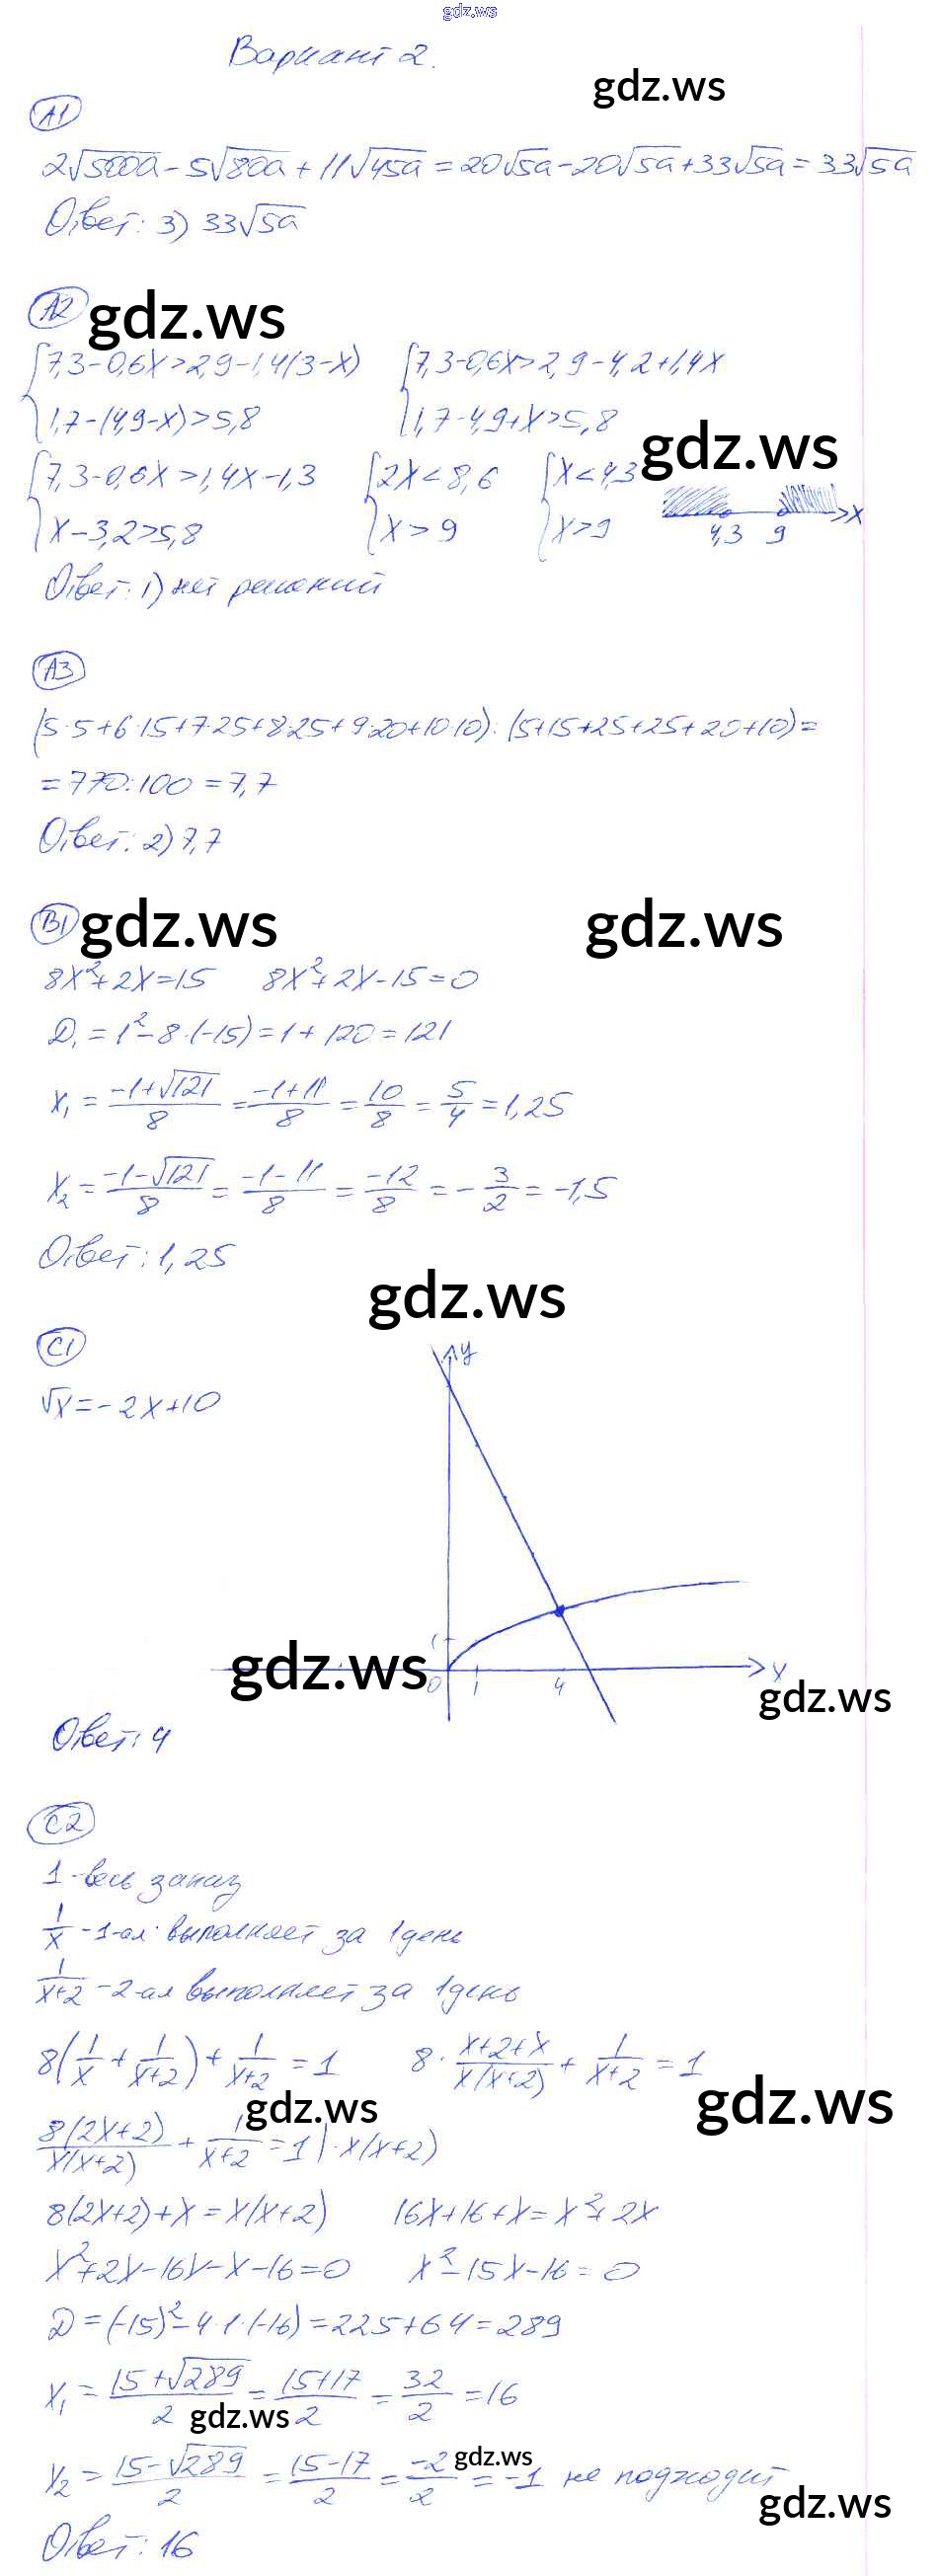 gdz.ws
Вариант 2.
gdz.ws
A1
2√500a - 5√80a + 11√45a = 20√5a - 20√5a + 33√5a = 33√5a
Ответ: 3) 33√5a
A2 gdz.ws
{7,3-0,6x>2,9-1,4(3-x) {7,3-0,6x>2,9-4,2+1,4x
{1,7-(4,9-x)>5,8 {1,7-4,9+x>5,8
gdz.ws
{7,3-0,6x>1,4x-1,3 {2x<8,6 {x<4,3
{x-3,2>5,8 {x>9 {x>9
4,3 9 x
Ответ: 1) нет решений
A3
(5·5+6·15+7·25+8·25+9·20+10·10):(5+15+25+25+20+10)=
=770:100=7,7
Ответ: 2) 7,7
B1 gdz.ws gdz.ws
8x²+2x=15 8x²+2x-15=0
D₁=1²-8·(-15)=1+120=121
x₁=(-1+√121)/8=(-1+11)/8=10/8=5/4=1,25
x₂=(-1-√121)/8=(-1-11)/8=-12/8=-3/2=-1,5
Ответ: 1,25
gdz.ws
C1
√x=-2x+10
y
1
gdz.ws
0 1 4 x
gdz.ws
Ответ: 4
C2
1-весь заказ
1/x -1-ая выполняет за 1день
1/(x+2) -2-ая выполняет за 1день
8(1/x+1/(x+2))+1/(x+2)=1 8·(x+2+x)/(x(x+2))+1/(x+2)=1
gdz.ws gdz.ws
8(2x+2)/(x(x+2))+1/(x+2)=1|·x(x+2)
8(2x+2)+x=x(x+2) 16x+16+x=x²+2x
x²+2x-16x-x-16=0 x²-15x-16=0
D=(-15)²-4·1·(-16)=225+64=289
x₁=(15+√289)/2=(15+17)/2=32/2=16
gdz.ws
gdz.ws
x₂=(15-√289)/2=(15-17)/2=-2/2=-1 не подходит
gdz.ws
Ответ: 16